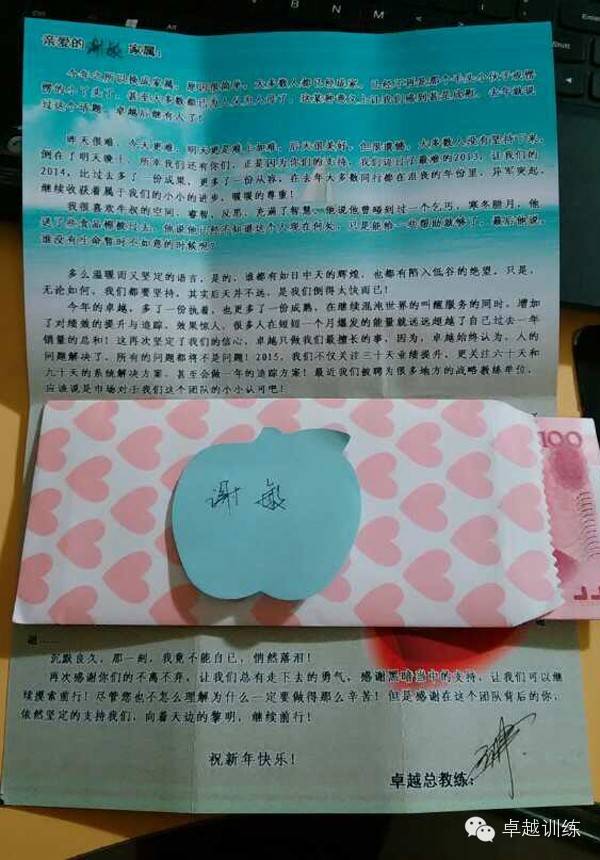 亲爱的 谢敏 家属：
今年之所以换成家属，原因很简单，大多数人都已经成家，
过这个话题，卓越后继有人了！
昨天很难，今天更难，明天更是难上加难，后天很美好，但很遗憾，大多数人没有坚持下来，
倒在了明天晚上，所幸我们还有你们，正是因为你们的支持，我们迈过了最难的2013，让我们的
2014，比过去多了一份成果，更多了一份从容，在去年大多数同行都在沮丧的年份里，异军突起，
继续收获着属于我们的小小的进步，暖暖的尊重！
我很喜欢牛叔的空间，睿智，反思，充满了智慧，他说他曾碰到过一个乞丐，寒冬腊月，他
送了些食品棉被过去，他说他已经不知道这个人现在何处，只是能给一些帮助就够了，最后他说，
谁没有生命暂时不如意的时候呢？
多么温暖而又坚定的语言，是的，谁都有如日中天的辉煌，也都有陷入低谷的绝望，只是，
无论如何，我们都要坚持，其实后天并不远，是我们倒得太快而已！
今年的卓越，多了一份执着，也更多了一份成熟，在继续混沌世界的叫醒服务的同时，增加
了对绩效的提升与追踪，效果惊人，很多人在短短一个月爆发的能量就远远超越了自己过去一年
销量的总和！这再次坚定了我们的信心，卓越只做我们最擅长的事，因为，卓越始终认为，人的
问题解决了，所有的问题都将不是问题！2015，我们不仅关注三十天业绩提升，更关注六十天和
九十天的系统解决方案，甚至会做一年的追踪方案！最近我们被聘为很多地方的战略教练单位，
应该说是市场对于我们这个团队的小小认可吧！
100
谢敏
沉默良久，那一刻，我竟不能自已，悄然落泪！
再次感谢你们的不离不弃，让我们总有走下去的勇气，感谢黑暗当中的支持，让我们可以继
续摸索前行！尽管您也不怎么理解为什么一定要做得那么辛苦！但是感谢在这个团队背后的你，
依然坚定的支持我们，向着天边的黎明，继续前行！
祝新年快乐！
卓越总教练：
卓越训练